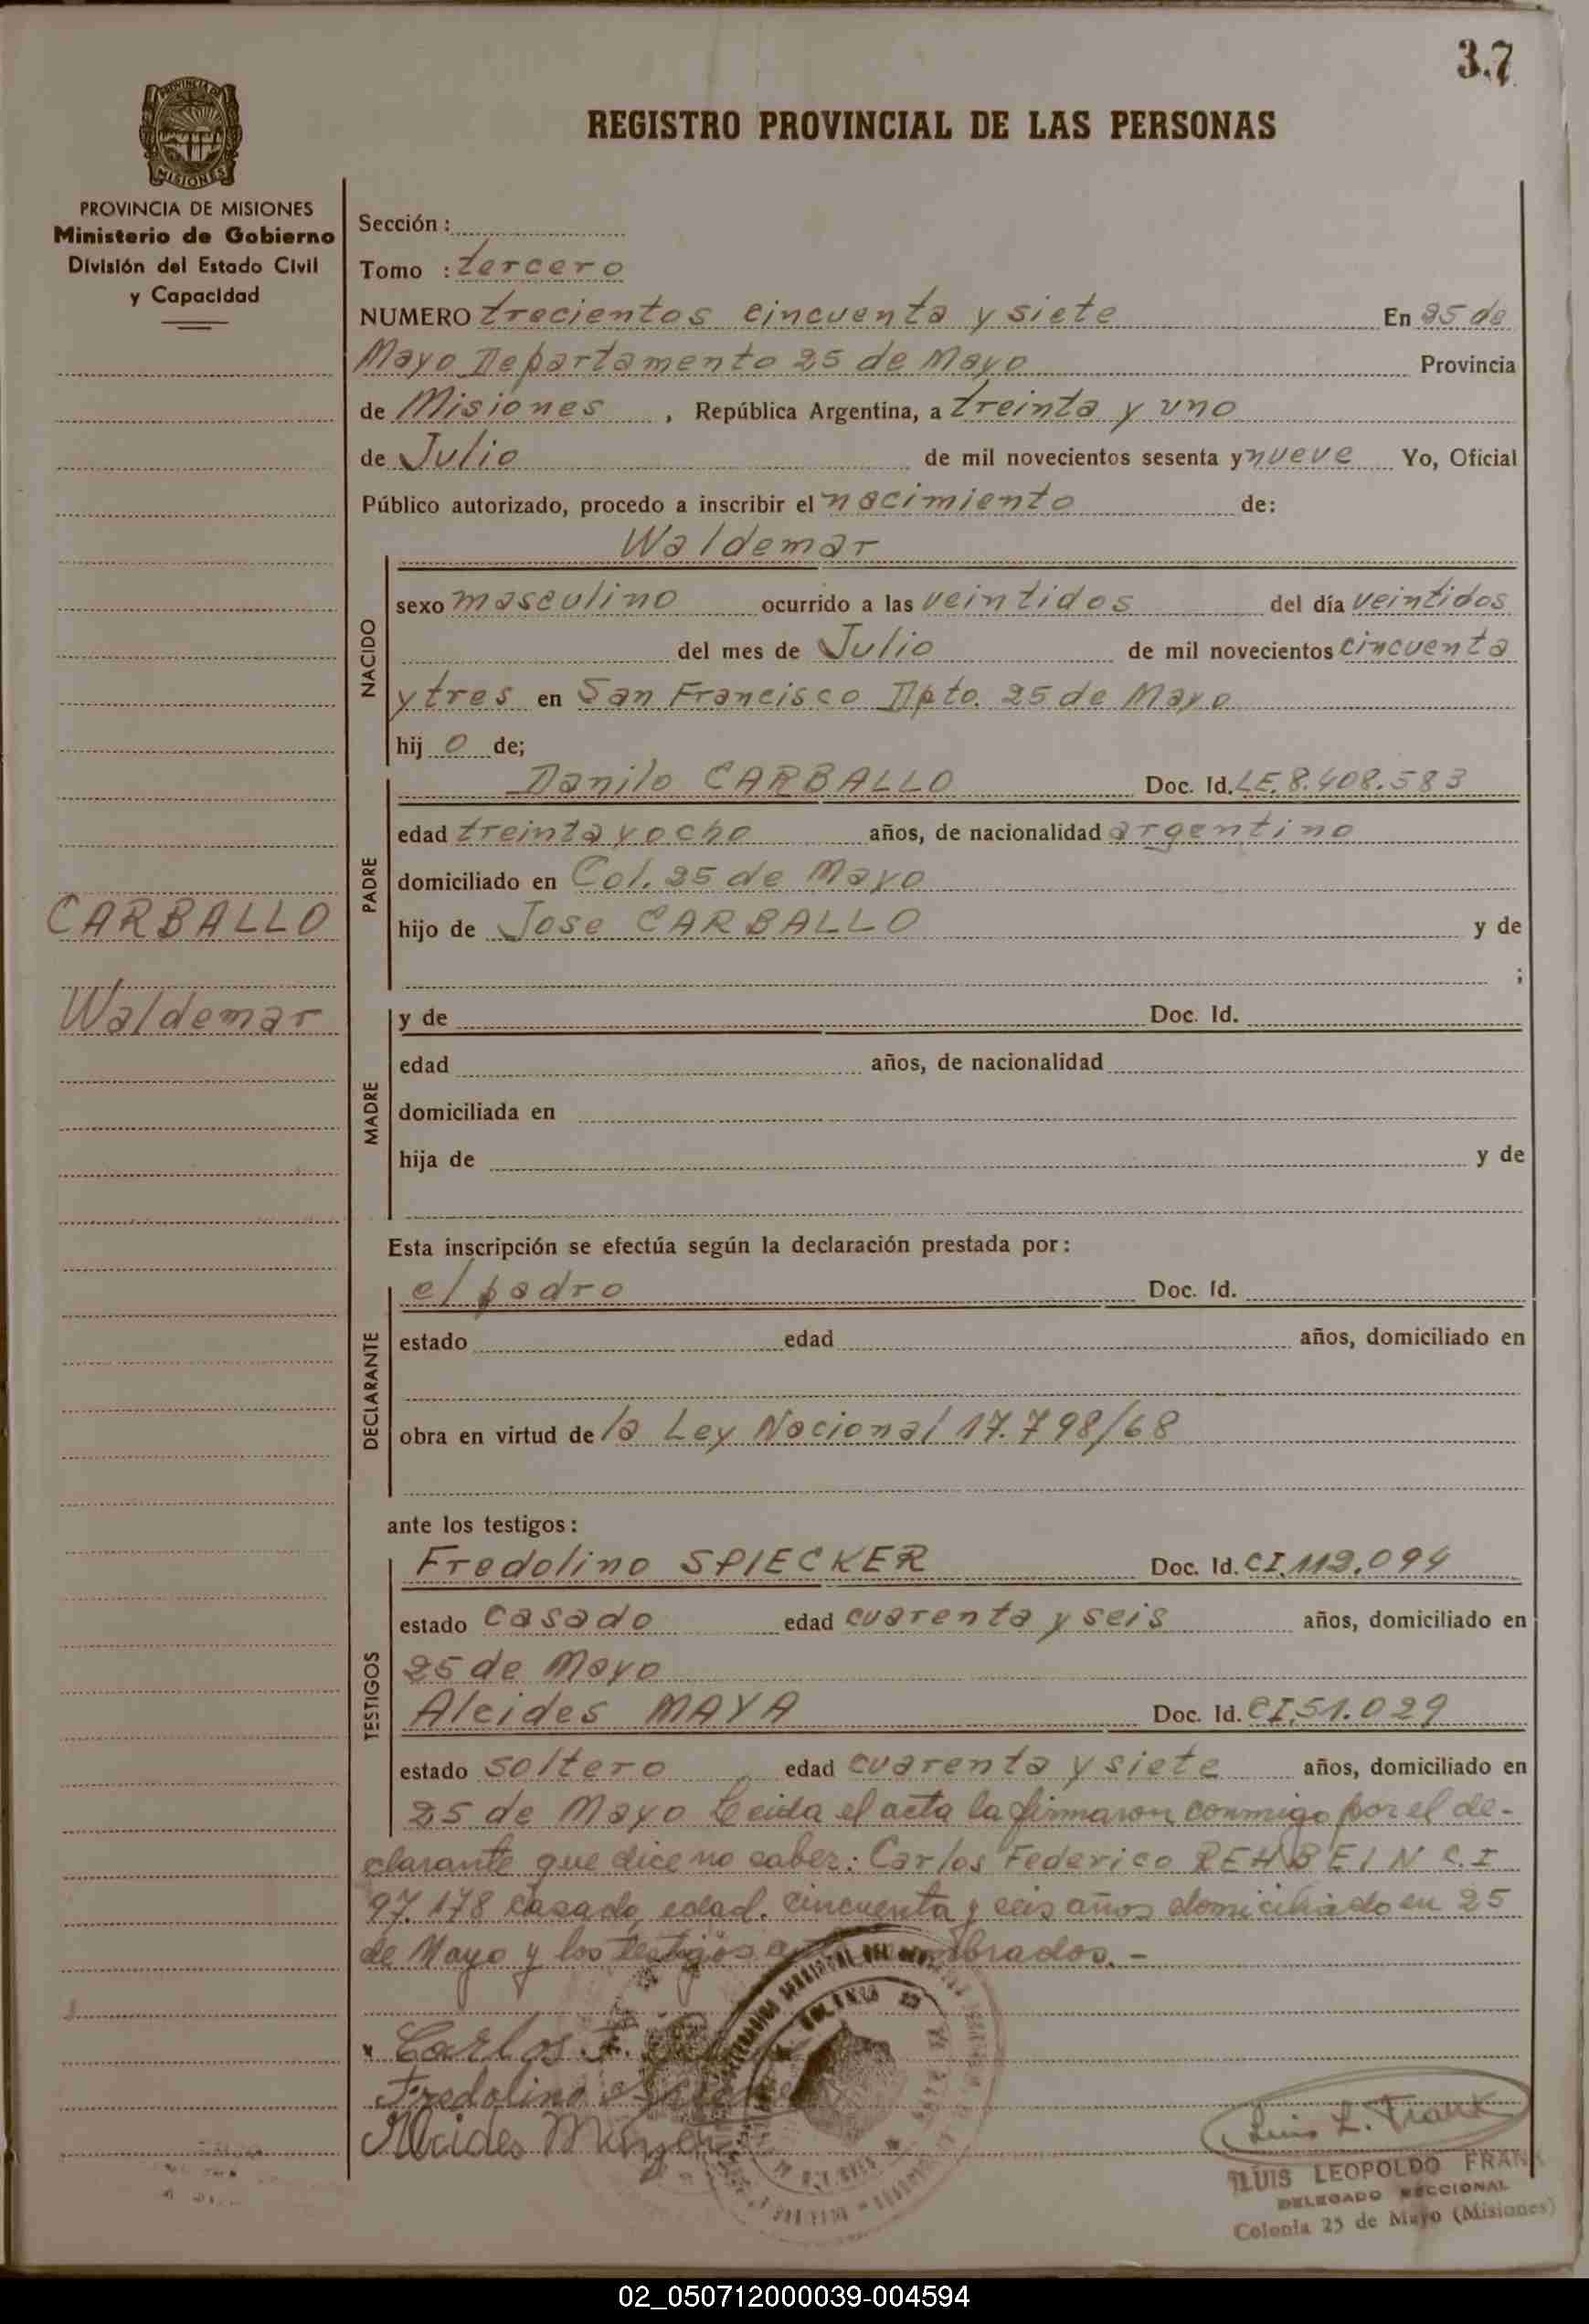 37
PROVINCIA DE MISIONES
REGISTRO PROVINCIAL DE LAS PERSONAS
PROVINCIA DE MISIONES
Ministerio de Gobierno
División del Estado Civil
y Capacidad
Sección :
Tomo : tercero
NUMERO trecientos cincuenta y siete En 25 de
Mayo Departamento 25 de Mayo Provincia
de Misiones , República Argentina, a treinta y uno
de Julio de mil novecientos sesenta y nueve Yo, Oficial
Público autorizado, procedo a inscribir el nacimiento de:
Waldemar
NACIDO
sexo masculino ocurrido a las veintidos del día veintidos
del mes de Julio de mil novecientos cincuenta
y tres en San Francisco Dpto. 25 de Mayo
hij o de;
PADRE
Danilo CARBALLO Doc. Id. LE. 8.408.583
edad treinta y ocho años, de nacionalidad argentino
domiciliado en Col. 25 de Mayo
hijo de Jose CARBALLO y de
;
CARBALLO
Waldemar
MADRE
y de Doc. Id.
edad años, de nacionalidad
domiciliada en
hija de y de
Esta inscripción se efectúa según la declaración prestada por:
DECLARANTE
el padro Doc. Id.
estado edad años, domiciliado en
obra en virtud de la Ley Nacional 17.798/68
ante los testigos:
TESTIGOS
Fredolino SPIECKER Doc. Id. CI. 112.094
estado casado edad cuarenta y seis años, domiciliado en
25 de Mayo
Alcides MAYA Doc. Id. CI. 51.029
estado soltero edad cuarenta y siete años, domiciliado en
25 de Mayo Leida el acta la firmaron conmigo por el de-
clarante que dice no saber: Carlos Federico REHBEIN C.I
97.178 casado, edad. cincuenta y seis años domiciliado en 25
de Mayo y los testigos mbrados.-
Carlos F.
Fredolino
Alcides
Luis L. Frank
LUIS LEOPOLDO FRANK
DELEGADO SECCIONAL
Colonia 25 de Mayo (Misiones)
02_050712000039-004594